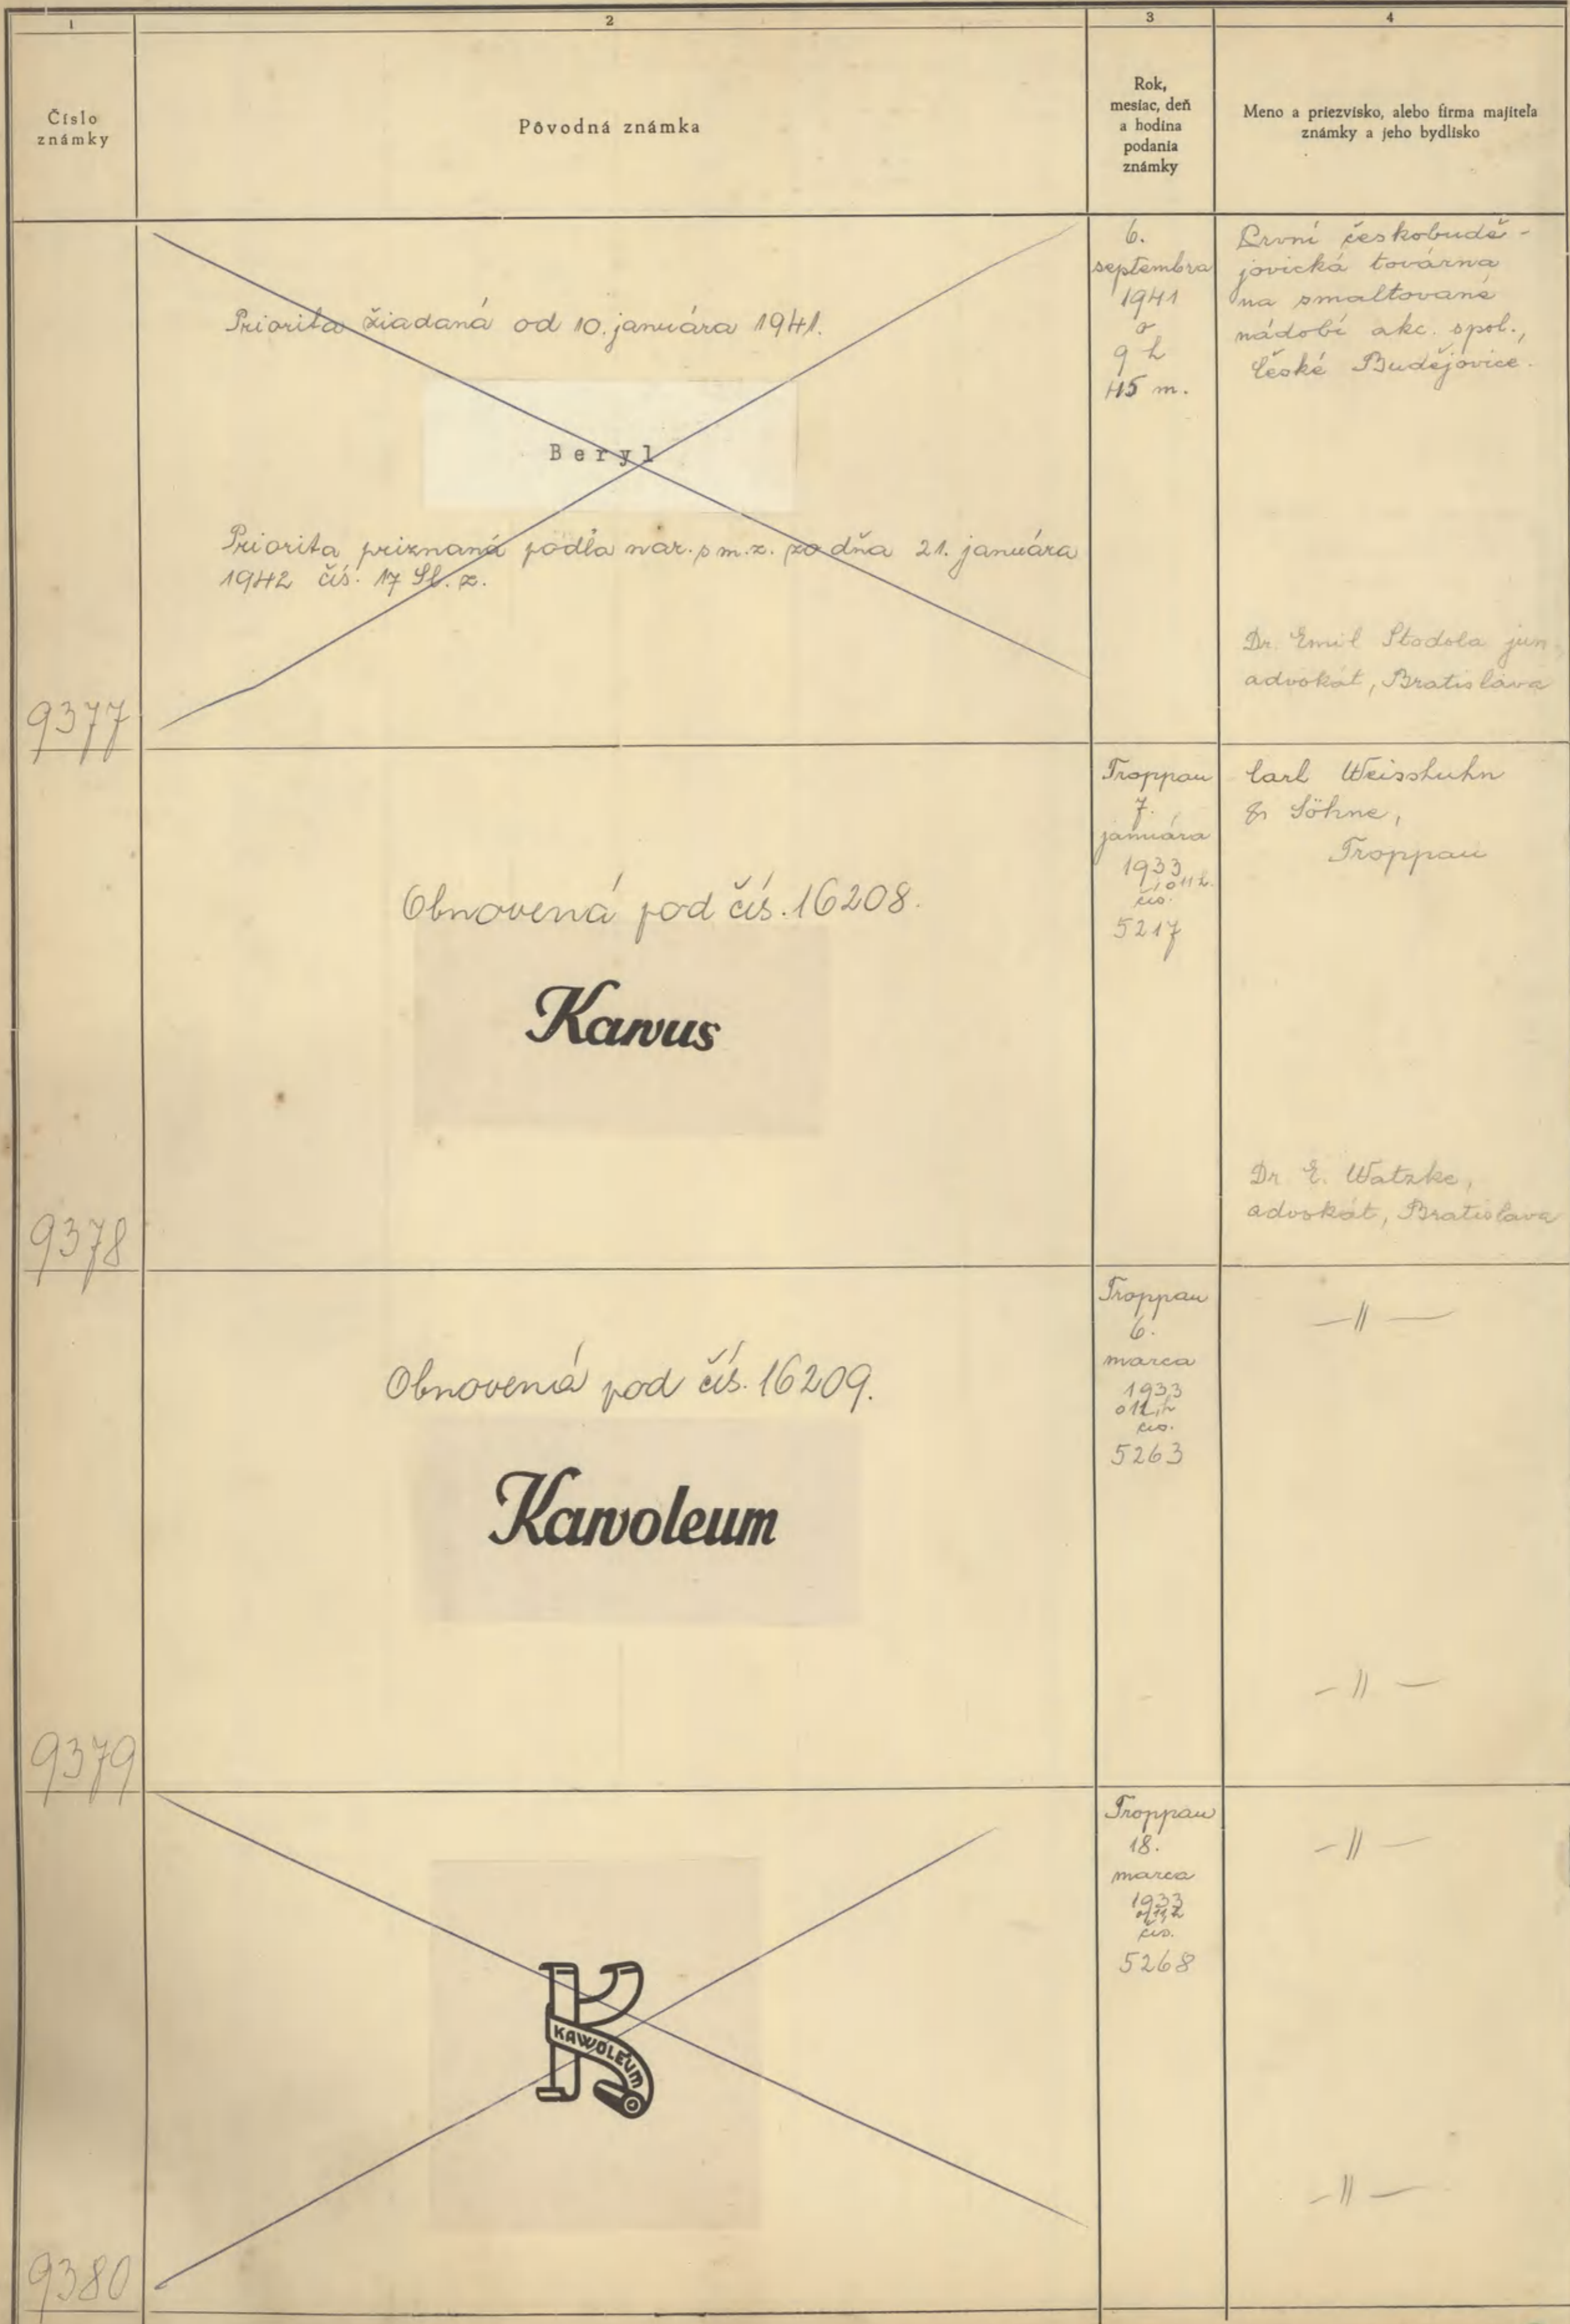 1
2
3
4
Číslo
známky
Pôvodná známka
Rok,
mesiac, deň
a hodina
podania
známky
Meno a priezvisko, alebo firma majiteľa
známky a jeho bydlisko
9377
Priorita žiadaná od 10. januára 1941.
Beryl
Priorita priznaná podľa nar. s m. z. zo dňa 21. januára
1942 čís. 17 Sl. z.
6.
septembra
1941
o
9 h
45 m.
První českobudě-
jovická továrna
na smaltované
nádobí akc. spol.,
České Budějovice.
Dr. Emil Stodola jun
advokát, Bratislava
9378
Obnovená pod čís. 16208.
Kawus
Troppau
7.
januára
1933
o 11 h.
čís.
5217
Carl Weisshuhn
& Söhne,
Troppau
Dr. E. Watzke,
advokát, Bratislava
9379
Obnovená pod čís. 16209.
Kawoleum
Troppau
6.
marca
1933
čís.
5263
—||—
—||—
9380
K
KAWOLEUM
Troppau
18.
marca
1933
čís.
5268
—||—
—||—